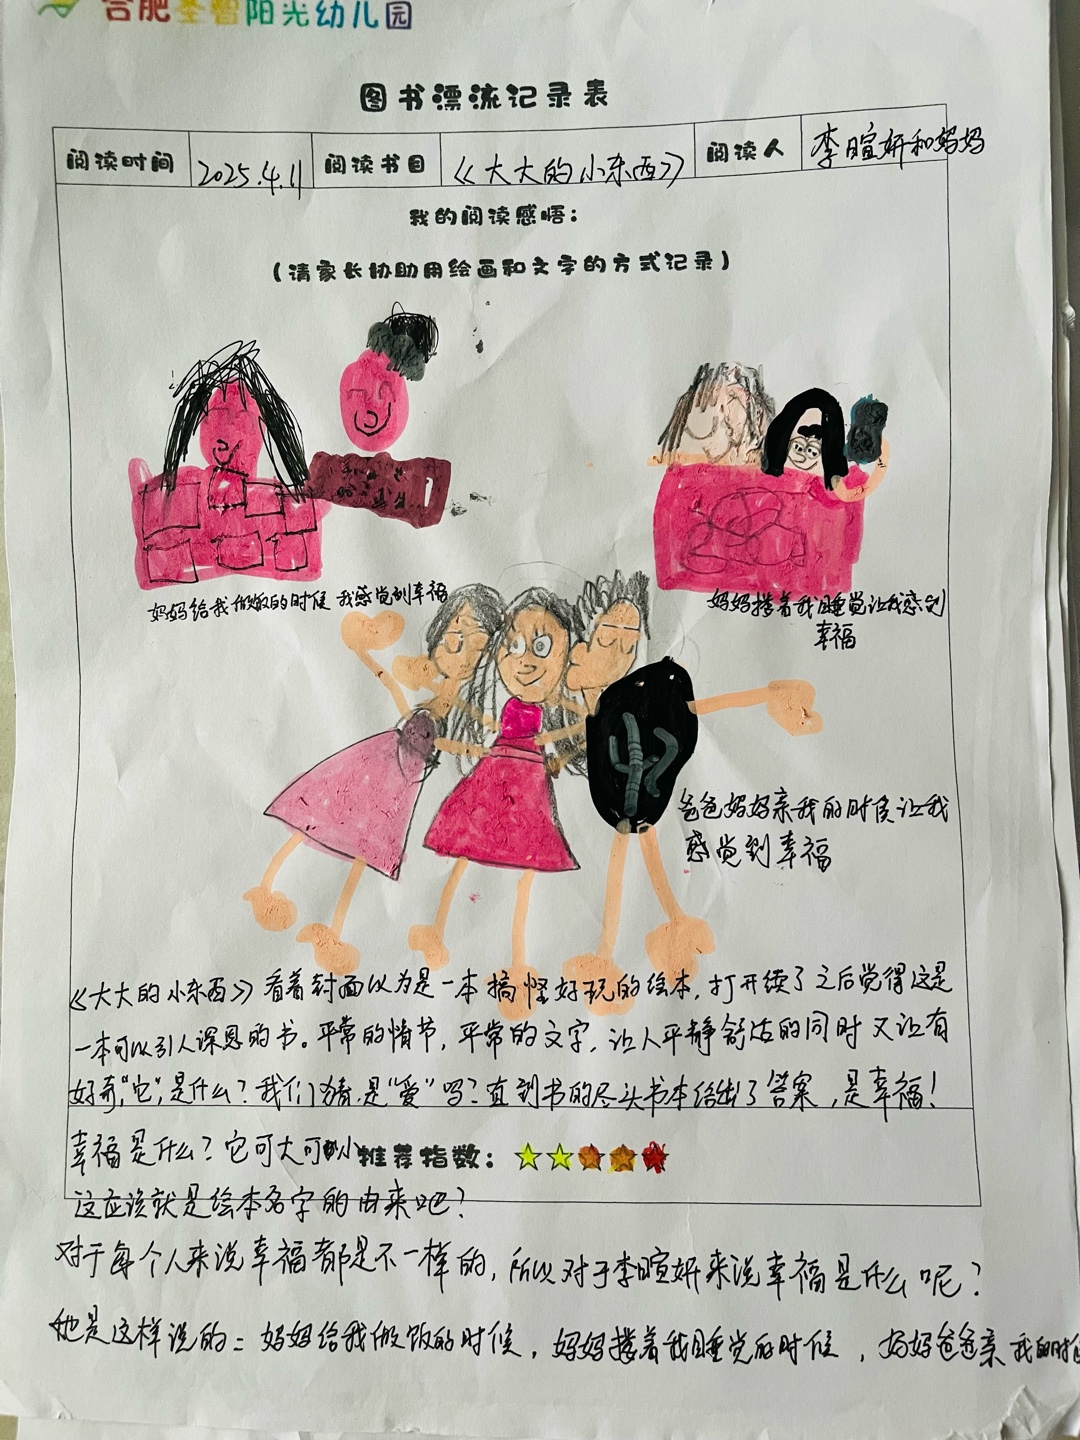 合肥圣智阳光幼儿园
图书漂流记录表
阅读时间 2025.4.11 阅读书目 《大大的小东西》 阅读人 李暄妍和妈妈
我的阅读感悟：
（请家长协助用绘画和文字的方式记录）
妈妈给我做饭的时候 我感觉到幸福
妈妈搂着我睡觉让我感到
幸福
爸爸妈妈亲我的时候让我
感觉到幸福
《大大的小东西》看着封面以为是一本搞怪好玩的绘本，打开续了之后觉得这是
一本可以引人深思的书。平常的情节，平常的文字，让人平静舒适的同时又让有
好奇，"它"是什么？我们猜是"爱"吗？直到书的尽头书本给出了答案，是幸福！
幸福是什么？它可大可小 推荐指数：
这应该就是绘本名字的由来吧？
对于每个人来说幸福都是不一样的，所以对于李暄妍来说幸福是什么呢？
她是这样说的：妈妈给我做饭的时候，妈妈搂着我睡觉的时候，妈妈爸爸亲我的时